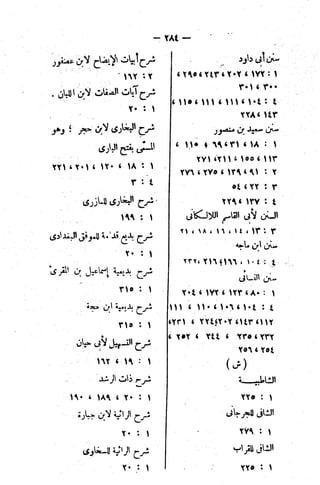 — ٢٨٤ —
سنن أبى داود
١ : ١٧٢ ، ٢٠٢ ، ٢٤٣ ، ٢٩٥ ،
٣٠٠ ، ٣٠١
٤ : ١٠٤ ، ١١١ ، ١١١ ، ١١٥ ،
١٤٣ ، ٢٢٨
سنن سعيد بن منصور
١ : ١٨ ، ٣١ ، ٦٩ ؛ ١١٥ ،
١١٣ ، ١٥٥ ، ٢١١ ، ٢٧١
٢ : ٩١ ، ١٣٩ ، ٢٧٥ ، ٢٧٦
٣ : ٢٢ ، ٥٤
٤ : ١٣٧ ، ٢٢٩
السنن لأبى القاسم اللالكائى
٣ : ١٣ ، ١٤ ، ١٦ ، ١٨ ، ٢١
سنن ابن ماجه
٤ : ١٠٤ ، ١٦٦ ؛ ٢١٦ ، ٢٣٢
سنن النسائى
١ : ٨٠ ، ١٢٣ ، ١٧٢ ، ٢٠٤
٤ : ١٠٤ ، ١٠٦ ، ١١٠ ، ١١١
١١٢ ، ١٤٣ ، ٢٠٢ ؛ ٢٢٤ ، ٢٣١ ،
٢٣٢ ، ٢٣٥ ، ٢٤٤ ، ٢٥٢ ،
٢٥٤ ، ٢٥٦
( ش )
الشاطبية
١ : ٢٢٥
الشافى للجرجانى
١ : ٢٧٩
الشافى للقراب
١ : ٢٢٥
شرح أبيات الإيضاح لابن عصفور
٢ : ١٦٢
شرح آيات الصفات لابن اللبان .
١ : ٢٠
شرح البخارى لابن حجر ؛ وهو
المسمى بفتح البارى
١ : ١٨ ، ١٢٠ ، ٢٠١ ، ٢٢١
٤ : ٣
شرح البخارى للمازرى
١ : ١٩٩
شرح بديع قدامة للموفق البغدادى
١ : ٢٠
شرح بديعية إسماعيل بن المقرئ
١ : ٣١٥
شرح بديعية ابن حجة
١ : ٣١٥
شرح التسهيل لأبى حيان
١ : ١٩ ، ١٦٢
شرح ذات الرشد
١ : ٢٠ ، ١٨٩ ، ١٩٠
شرح الرائية لابن جبارة
١ : ٢٠
شرح الرائية للسخاوى
١ : ٢٠